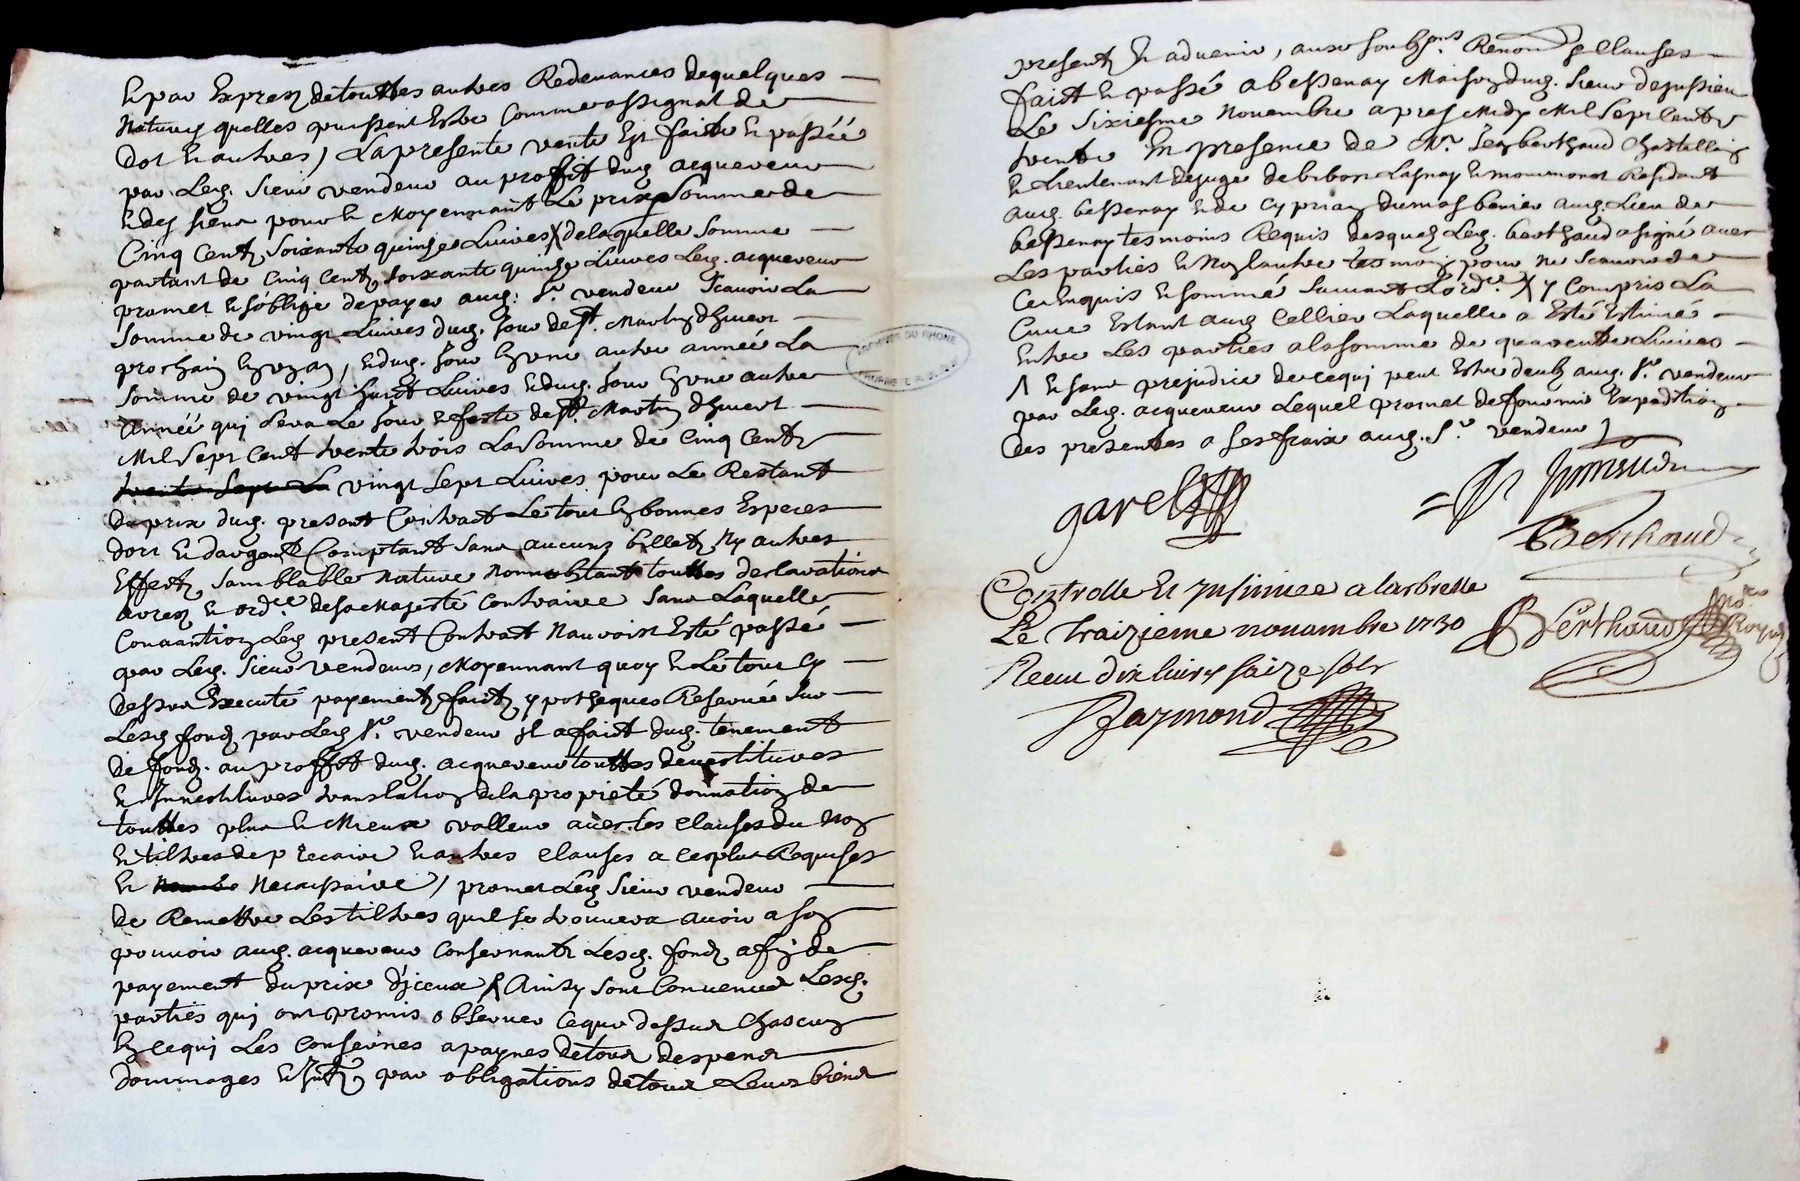 Et par Expres de touttes autres Redevances de quelques
Natures quelles puissent Estre Comme assignat de
dot Et autres, La presente vente Est faite Et passéé
par Led. Sieur vendeur au proffit dud. acquereur
Et des siens pour Et Moyennant Le prix Somme de
Cinq Cents Soixante quinze Livres X de laquelle Somme
partant de Cinq Cents Soixante quinze Livres Led. acquereur
promet Et soblige de payer aud. Sr. vendeur Scavoir La
Somme de vingt Livres dud. Jour de St. Martin dhivert
prochain En un an, Et dud. Jour En une autre année La
Somme de vingt huict Livres Et dud. Jour En une autre
Année qui Sera Le Jour Et feste de St. Martin dhivert
Mil Sept Cent trente trois La Somme de Cinq Cents
vingt Sept Livres pour Le Restant
du prix dud. presant Contract Le tout En bonnes Especes
dort Et dargent Comptant Sans aucuns billets Ny autres
Effects Samblable Nature Nonnobstant touttes declarations
Et ordce. de Sa Majesté Contraire Sans Laquelle
Convantion Led. present Contract Nauroist Esté passé
par Led. Sieur vendeur, Moyennant quoy Et Le tout Cy
dessus Executé payements faicts ypotheques Reservée Sur
Lesd. fonds par Led. Sr. vendeur Il a faict dud. tenement
de fonds. au proffit dud. acquereur touttes devestitures
Et Investitures translation de la proprieté donnation de
touttes plus Et Mieux valleur avec les Clauses du Nom
Et tiltres de precaire Et autres Clauses a Ce plus Requises
Et Necessaire, promet Led. Sieur vendeur
de Remettre Les tiltres quil Se trouvera avoir a Son
pouvoir aud. acquereur Consernants Lesd. fonds afin de
payement du prix diceux Ainsy Sont Convenues Lesd.
parties qui ont promis observer Ce que dessus Chascun
En Ce qui Les Consernes a paynes de tous despens
dommages Et Intts par obligations de tous Leurs biens
presents Et advenir, aux Soubzons. Renons. Et Clauses
faict Et passé a bessenay Maison dud. Sieur dejussieu
Le Sixiesme Novembre apres Midy Mil Sept Cents
trente En presence de Mr. Jean berthaud Chastellain
Et Lieutenant de juge de bibost Lasnay Et Montmonot Residant
aud. bessenay Et de Cyprian dumas benier aud. Lieu de
bessenay tesmoins Requis desquels Led. berthaud a signé avec
Les parties Et Non Lautre tesmoin pour Ne Scavoir de
Ce Enquis Et Sommé Suivant Lordce. X y Compris La
Cuve Estant aud. Cellier Laquelle a Esté Estimé
Entre Les parties a la Somme de quarente Livres
Λ Et Sans prejudice de Ce qui peut Estre deub aud. Sr. vendeur
par Led. acquereur Lequel promet de fournir Expedition
des presentes a Ses fraix aud. Sr. vendeur
garel
Berthaud
Controlle Et Insinuee a larbrelle
Le traizieme nouambre 1730
Berthaud
Receu dix livres saize sols
Raymond
ARCHIVES DU RHONE